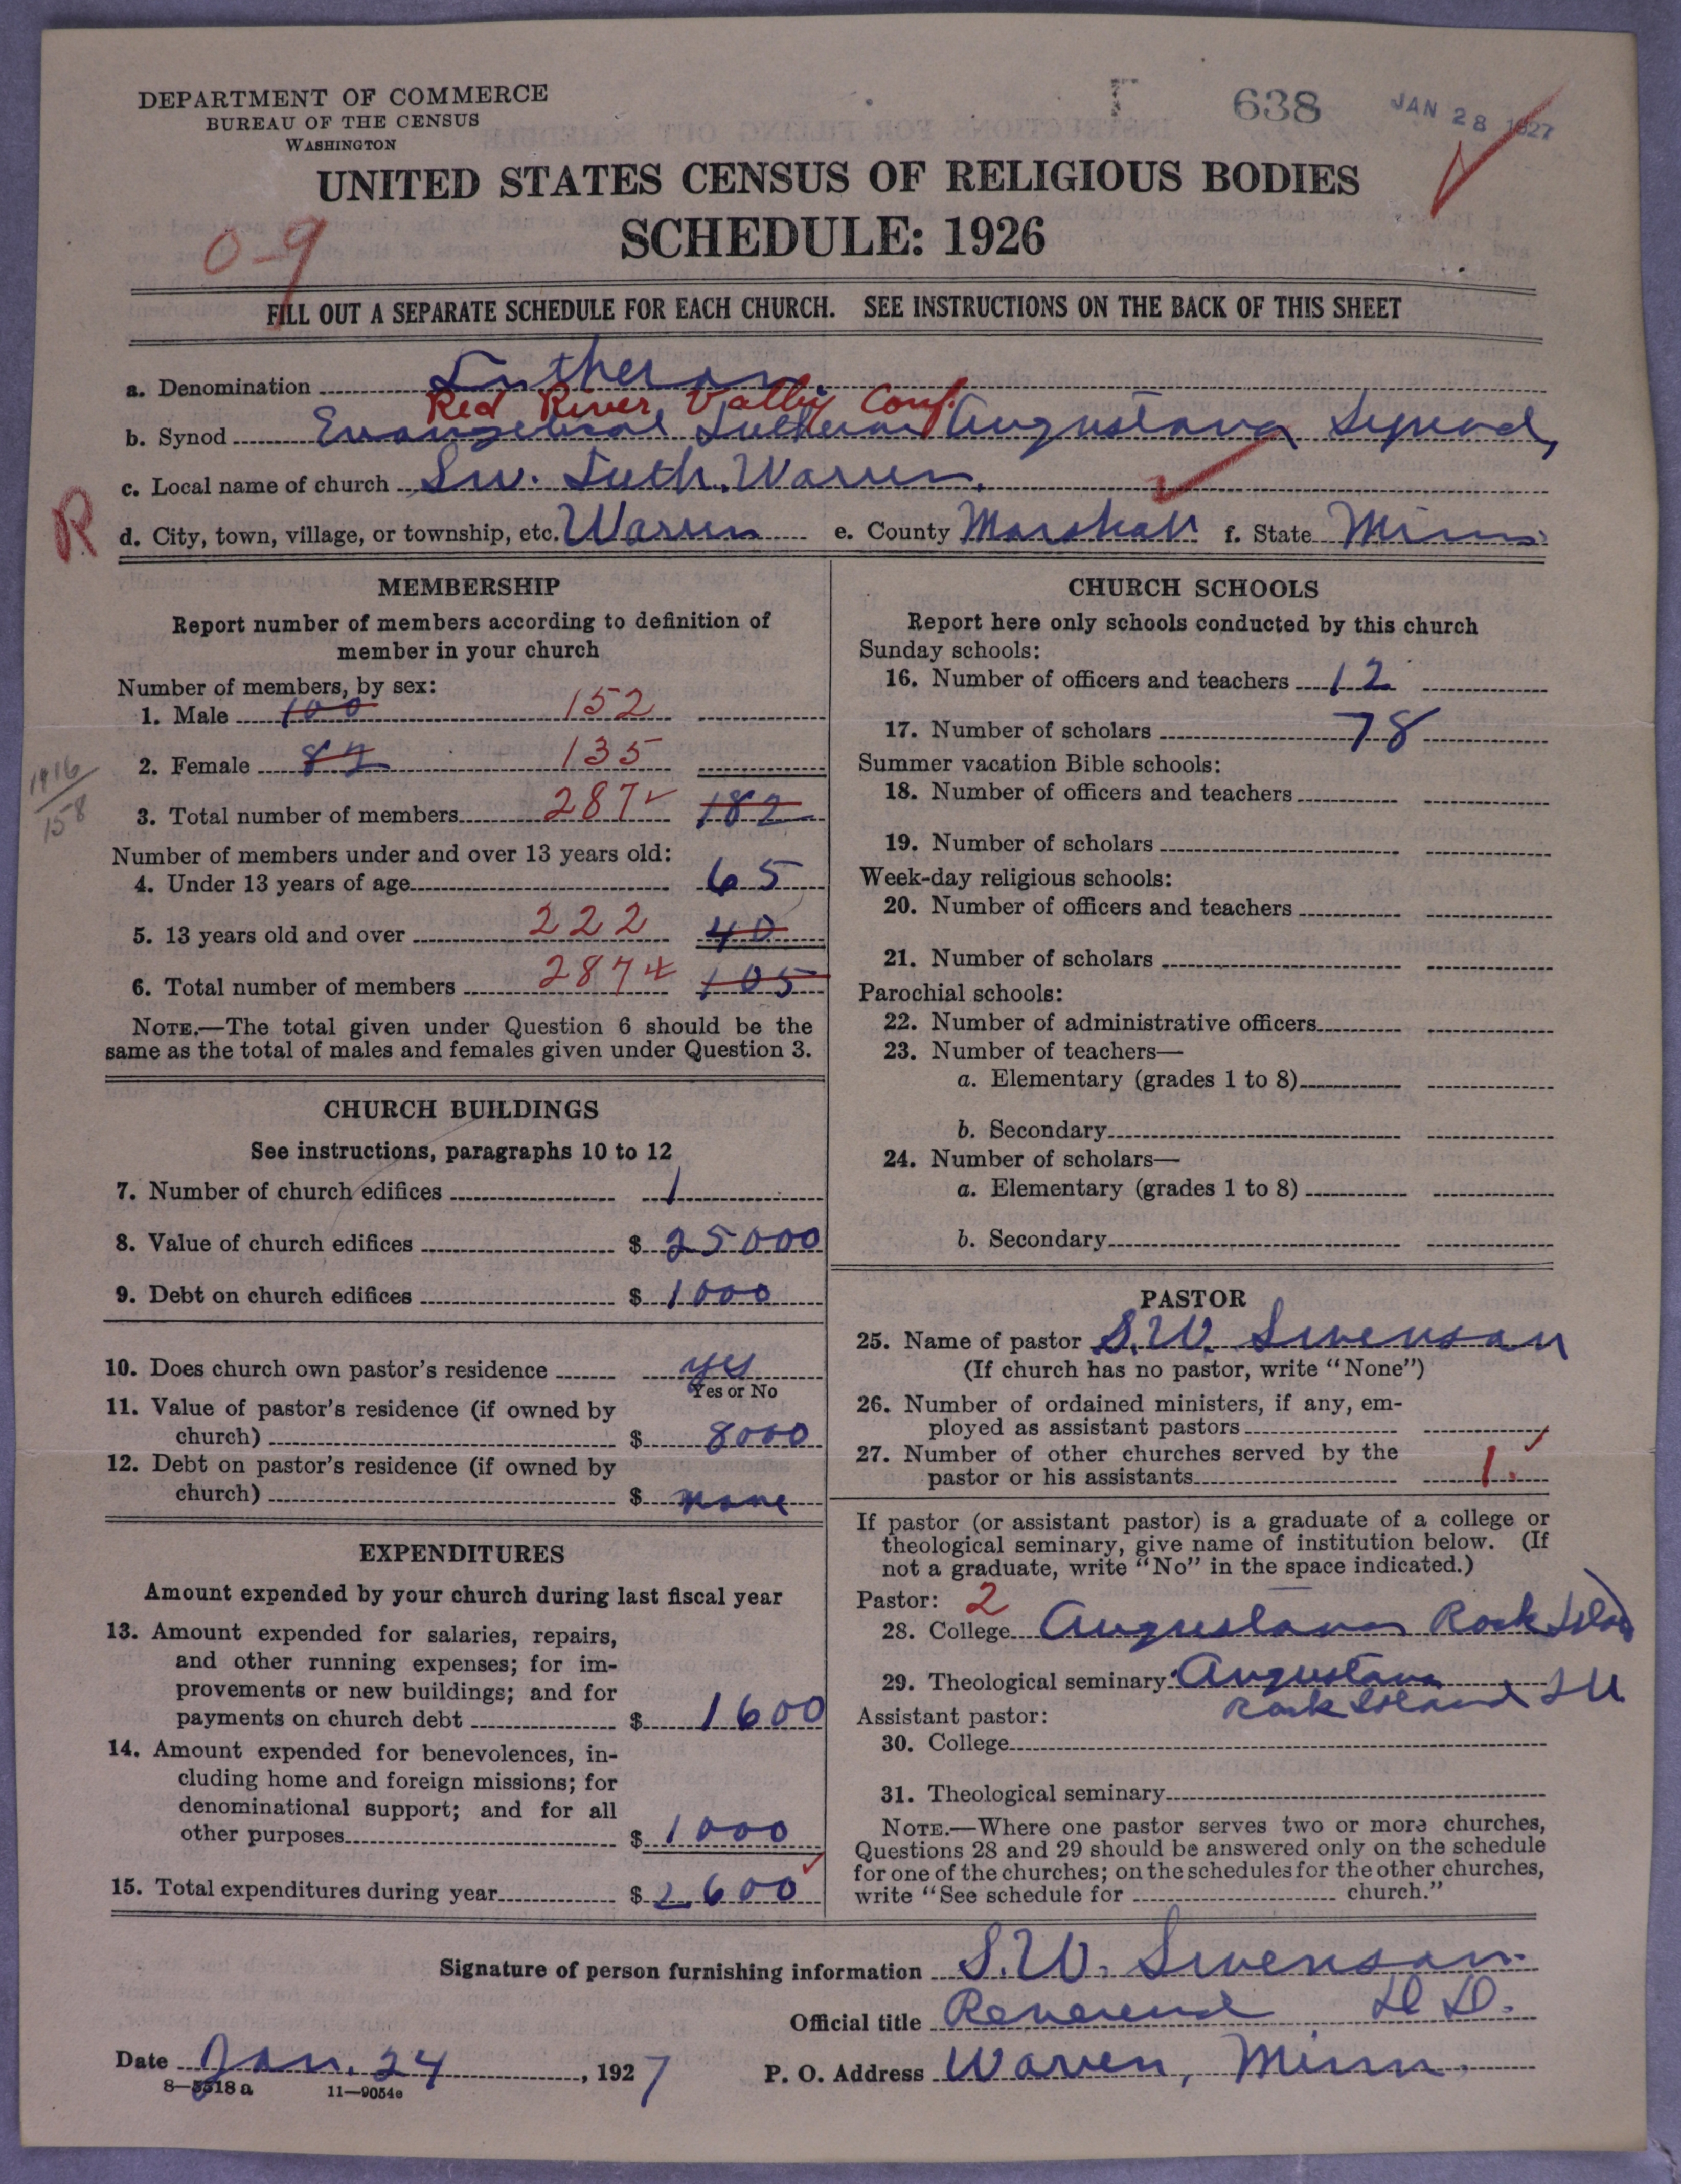 DEPARTMENT OF COMMERCE
BUREAU OF THE CENSUS
WASHINGTON
638
JAN 28 1927
UNITED STATES CENSUS OF RELIGIOUS BODIES
SCHEDULE: 1926
0-9
FILL OUT A SEPARATE SCHEDULE FOR EACH CHURCH. SEE INSTRUCTIONS ON THE BACK OF THIS SHEET
a. Denomination Lutheran.
Red River Valley Conf.
b. Synod Evangelical Lutheran Augustana Synod,
c. Local name of church Sw. Luth. Warren.
R
d. City, town, village, or township, etc. Warren e. County Marshall f. State Minn
MEMBERSHIP
Report number of members according to definition of
member in your church
Number of members, by sex:
1. Male 100 152
2. Female 82 135
1916
158
3. Total number of members 287 182
Number of members under and over 13 years old:
4. Under 13 years of age 65
5. 13 years old and over 222 40
6. Total number of members 287 105
NOTE.—The total given under Question 6 should be the
same as the total of males and females given under Question 3.
CHURCH BUILDINGS
See instructions, paragraphs 10 to 12
7. Number of church edifices 1
8. Value of church edifices $ 25000
9. Debt on church edifices $ 1000
10. Does church own pastor's residence yes
Yes or No
11. Value of pastor's residence (if owned by
church) $ 8000
12. Debt on pastor's residence (if owned by
church) $ none
EXPENDITURES
Amount expended by your church during last fiscal year
13. Amount expended for salaries, repairs,
and other running expenses; for im-
provements or new buildings; and for
payments on church debt $ 1600
14. Amount expended for benevolences, in-
cluding home and foreign missions; for
denominational support; and for all
other purposes $ 1000
15. Total expenditures during year $ 2600
CHURCH SCHOOLS
Report here only schools conducted by this church
Sunday schools:
16. Number of officers and teachers 12
17. Number of scholars 78
Summer vacation Bible schools:
18. Number of officers and teachers
19. Number of scholars
Week-day religious schools:
20. Number of officers and teachers
21. Number of scholars
Parochial schools:
22. Number of administrative officers
23. Number of teachers—
a. Elementary (grades 1 to 8)
b. Secondary
24. Number of scholars—
a. Elementary (grades 1 to 8)
b. Secondary
PASTOR
25. Name of pastor S.W. Swenson
(If church has no pastor, write "None")
26. Number of ordained ministers, if any, em-
ployed as assistant pastors
27. Number of other churches served by the
pastor or his assistants 1.
If pastor (or assistant pastor) is a graduate of a college or
theological seminary, give name of institution below. (If
not a graduate, write "No" in the space indicated.)
Pastor: 2
28. College Augustana Rock Island
29. Theological seminary Augustana
Rock Island Ill
Assistant pastor:
30. College
31. Theological seminary
NOTE.—Where one pastor serves two or more churches,
Questions 28 and 29 should be answered only on the schedule
for one of the churches; on the schedules for the other churches,
write "See schedule for church."
Signature of person furnishing information S.W. Swenson
Official title Reverend D D.
Date Jan. 24, 1927 P. O. Address Warren, Minn.
8—5518 a 11—9054e